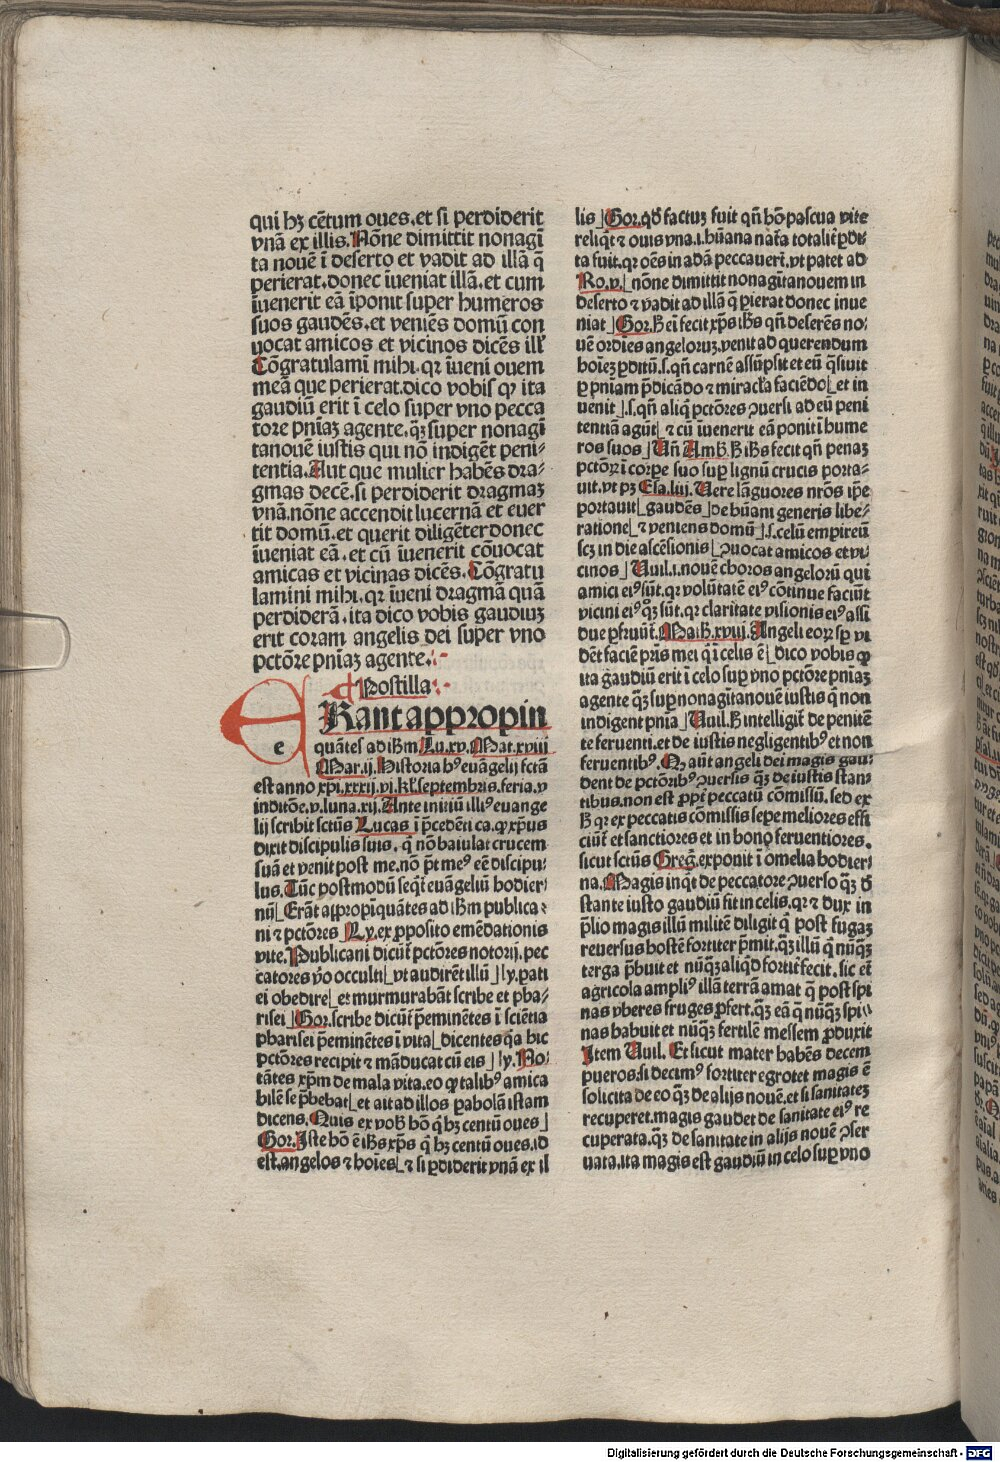 qui hꝫ cētum oues.et si perdiderit
vnā ex illis.Nōne dimittit nonagī
ta nouē ī deserto et vadit ad illā q̄
perierat.donec īueniat illā.et cum
īuenerit eā īponit super humeros
suos gaudēs.et veniēs domū con
uocat amicos et vicinos dicēs ill'
Cōgratulamī mihi.qꝛ īueni ouem
meā que perierat.dico vobis ꝙ ita
gaudiū erit ī celo super vno pecca
tore pniaꝫ agente.q̄ꝫ super nonagī
tanouē iustis qui nō indigēt peni-
tentia.Aut que mulier habēs dra-
gmas decē.si perdiderit dragmaꝫ
vnā.nōne accendit lucernā et euer
tit domū.et querit diligēter donec
īueniat eā.et cū īuenerit cōuocat
amicas et vicinas dicēs.Cōgratu
lamini mihi.qꝛ īueni dragmā quā
perdiderā.ita dico vobis gaudiuꝫ
erit coram angelis dei super vno
pctōre pniaꝫ agente.
Postilla
e
Rant appropin
quātes ad iħm Lu.xv.Mat.xviij
Mar.ij.Historia hꝰ euāgelij fctā
est anno xpi.xxxij.vj.kl'.septembris.feria.v
inditōe.v.luna.xij.Ante initiū illiꝰ euange
lij scribit sctūs Lucas ī p̄cedēti ca.ꝙ xp̄us
dixit discipulis suis. q̄ nō baiulat crucem
suā et venit post me.nō p̄t meꝰ eē discipu
lus.Tūc postmodū seqt̄ euāgeliū hodier
nū⌊Erāt appropīquātes ad iħm publica
ni ⁊ pctōres⌋Ly.ex ꝓposito emēdationis
vite.Publicani dicūt̄ pctōres notorij.pec
catores v̄o occulti⌊vt audirēt illū⌋ly.pati
ei obedire⌊et murmurabāt scribe et pha-
risei⌋Gor.scribe dicūt̄ p̄eminētes ī sciētia
pharisei p̄eminētes ī vita⌊dicentes q̄a hic
pctōres recipit ⁊ māducat cū eis⌋ly.No
tātes xp̄m de mala vita.eo ꝙ talibꝰ amica
bilē se p̄hebat⌊et ait ad illos ꝑabolā istam
dicens.Quis ex vob̄ hō q̄ hꝫ centū oues⌋
Gor.Iste hō ē iħs xp̄s q̄ hꝫ centū oues.id
est.angelos ⁊ hoīes⌊⁊ si ꝑdiderit vnā ex il
lis⌋Gor.qd̄ factuꝫ fuit qn̄ hō pascua vite
reliq̄t ⁊ ouis vna.i.hūana nat̄a totalit̄ ꝑdi
ta fuit.qꝛ oēs in adā peccauert̄.vt patet ad
Ro.v.⌊nōne dimittit nonagītanouem in
deserto ⁊ vadit ad illā q̄ ꝑierat donec inue
niat⌋Gor.H̄ ei fecit xp̄s iħs qn̄ deserēs no
uē ordīes angeloruꝫ.venit ad querendum
hoīeꝫ ꝑditū.s.qn̄ carnē assūpsit et eū q̄siuit
ꝑ pniam p̄dicādo ⁊ miracl'a faciēdo⌊et in
uenit⌋.s.qn̄ aliq̄ pctōres ꝯuersi ad eū peni
tentiā agūt⌊⁊ cū īuenerit eā ponit ī hume
ros suos⌋Vn̄ Amb̄.H̄ iħs fecit qn̄ penaꝫ
pctōꝝ ī corꝑe suo suꝑ lignū crucis porta-
uit.vt pꝫ Esa.liij.Vere lāguores nr̄os ip̄e
portauit⌊gaudēs⌋de hūani generis libe
ratione⌊⁊ veniens domū⌋.s.celū empireū
scꝫ in die ascēsionis⌊ꝯuocat amicos et vi
cinos⌋Vuil.i.nouē choros angelorū qui
amici eiꝰ sūt.qꝛ volūtatē eiꝰ cōtinue faciūt
vicini eiꝰ q̄ꝫ sūt.qꝛ claritate visionis eiꝰ assi
due ꝑfruūt̄.Math̄.xviij.Angeli eoꝝ sꝑ vi
dēt faciē pris mei q̄ ī celis ē⌊dico vobis ꝙ
ita gaudiū erit ī celo suꝑ vno pctōre pniaꝫ
agente q̄ꝫ suꝑ nonagītanouē iustis q̄ non
indigent pnia⌋Vuil.H̄ intelligit̄ de penitē
te feruenti.et de iustis negligentibꝰ et non
feruentibꝰ.Nā aūt angeli dei magis gau
dent de pctōribꝰ ꝯuersis q̄ꝫ de iustis stan
tibus.non est ꝓpt̄ peccatū cōmissū.sed ex
h̄ qꝛ ex peccatis cōmissis sepe meliores effi
ciūt̄ et sanctiores et in bono feruentiores.
sicut sctūs Greḡ.exponit ī omelia hodier
na.Magis inqt̄ de peccatore ꝯuerso q̄ꝫ d̄
stante iusto gaudiū fit in celis.qꝛ ⁊ dux in
p̄lio magis illū militē diligit q̄ post fugaꝫ
reuersus hostē fortiter p̄mit.q̄ꝫ illū q̄ nūq̄ꝫ
terga p̄buit et nūq̄ꝫ aliqd̄ fortit̄ fecit.sic et̄
agricola ampliꝰ illā terrā amat q̄ post spi
nas vberes fruges ꝓfert.q̄ꝫ eā q̄ nūq̄ꝫ spi
nas habuit et nūq̄ꝫ fertilē messem ꝓduxit
Item Vuil. Et sicut mater habēs decem
pueros.si decimꝰ fortiter egrotet magis ē
solicita de eo q̄ꝫ de alijs nouē.et si sanitateꝫ
recuperet.magis gaudet de sanitate eiꝰ re
cuperata.q̄ꝫ de sanitate in alijs nouē ꝯser
uata.ita magis est gaudiū in celo suꝑ vno
Digitalisierung gefördert durch die Deutsche Forschungsgemeinschaft - DFG